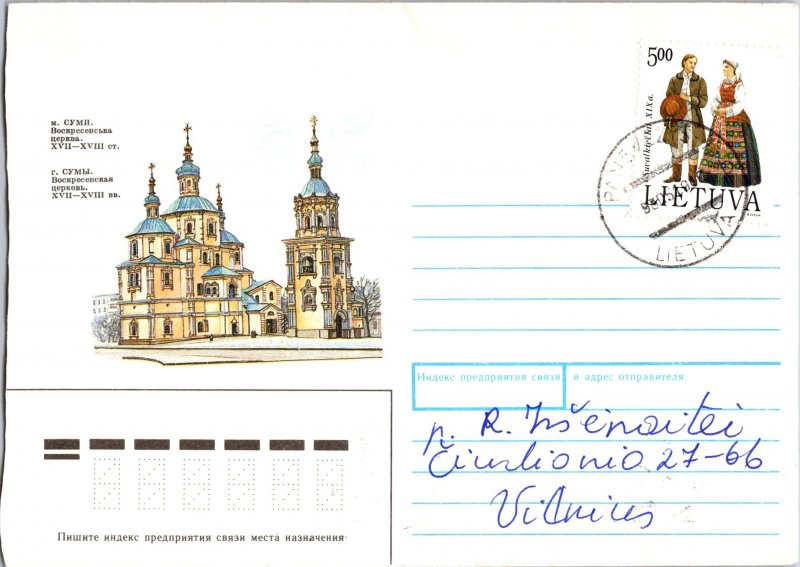 м. СУМИ.
Воскресенська
церква.
XVII—XVIII ст.
г. СУМЫ.
Воскресенская
церковь.
XVII—XVIII вв.
5.00
Suvalkiečiai XIX a.
LIETUVA
LIETUVA
Индекс предприятия связи и адрес отправителя
p. R. Iršėnaitei
Čiurlionio 27-66
Vilnius
Пишите индекс предприятия связи места назначения